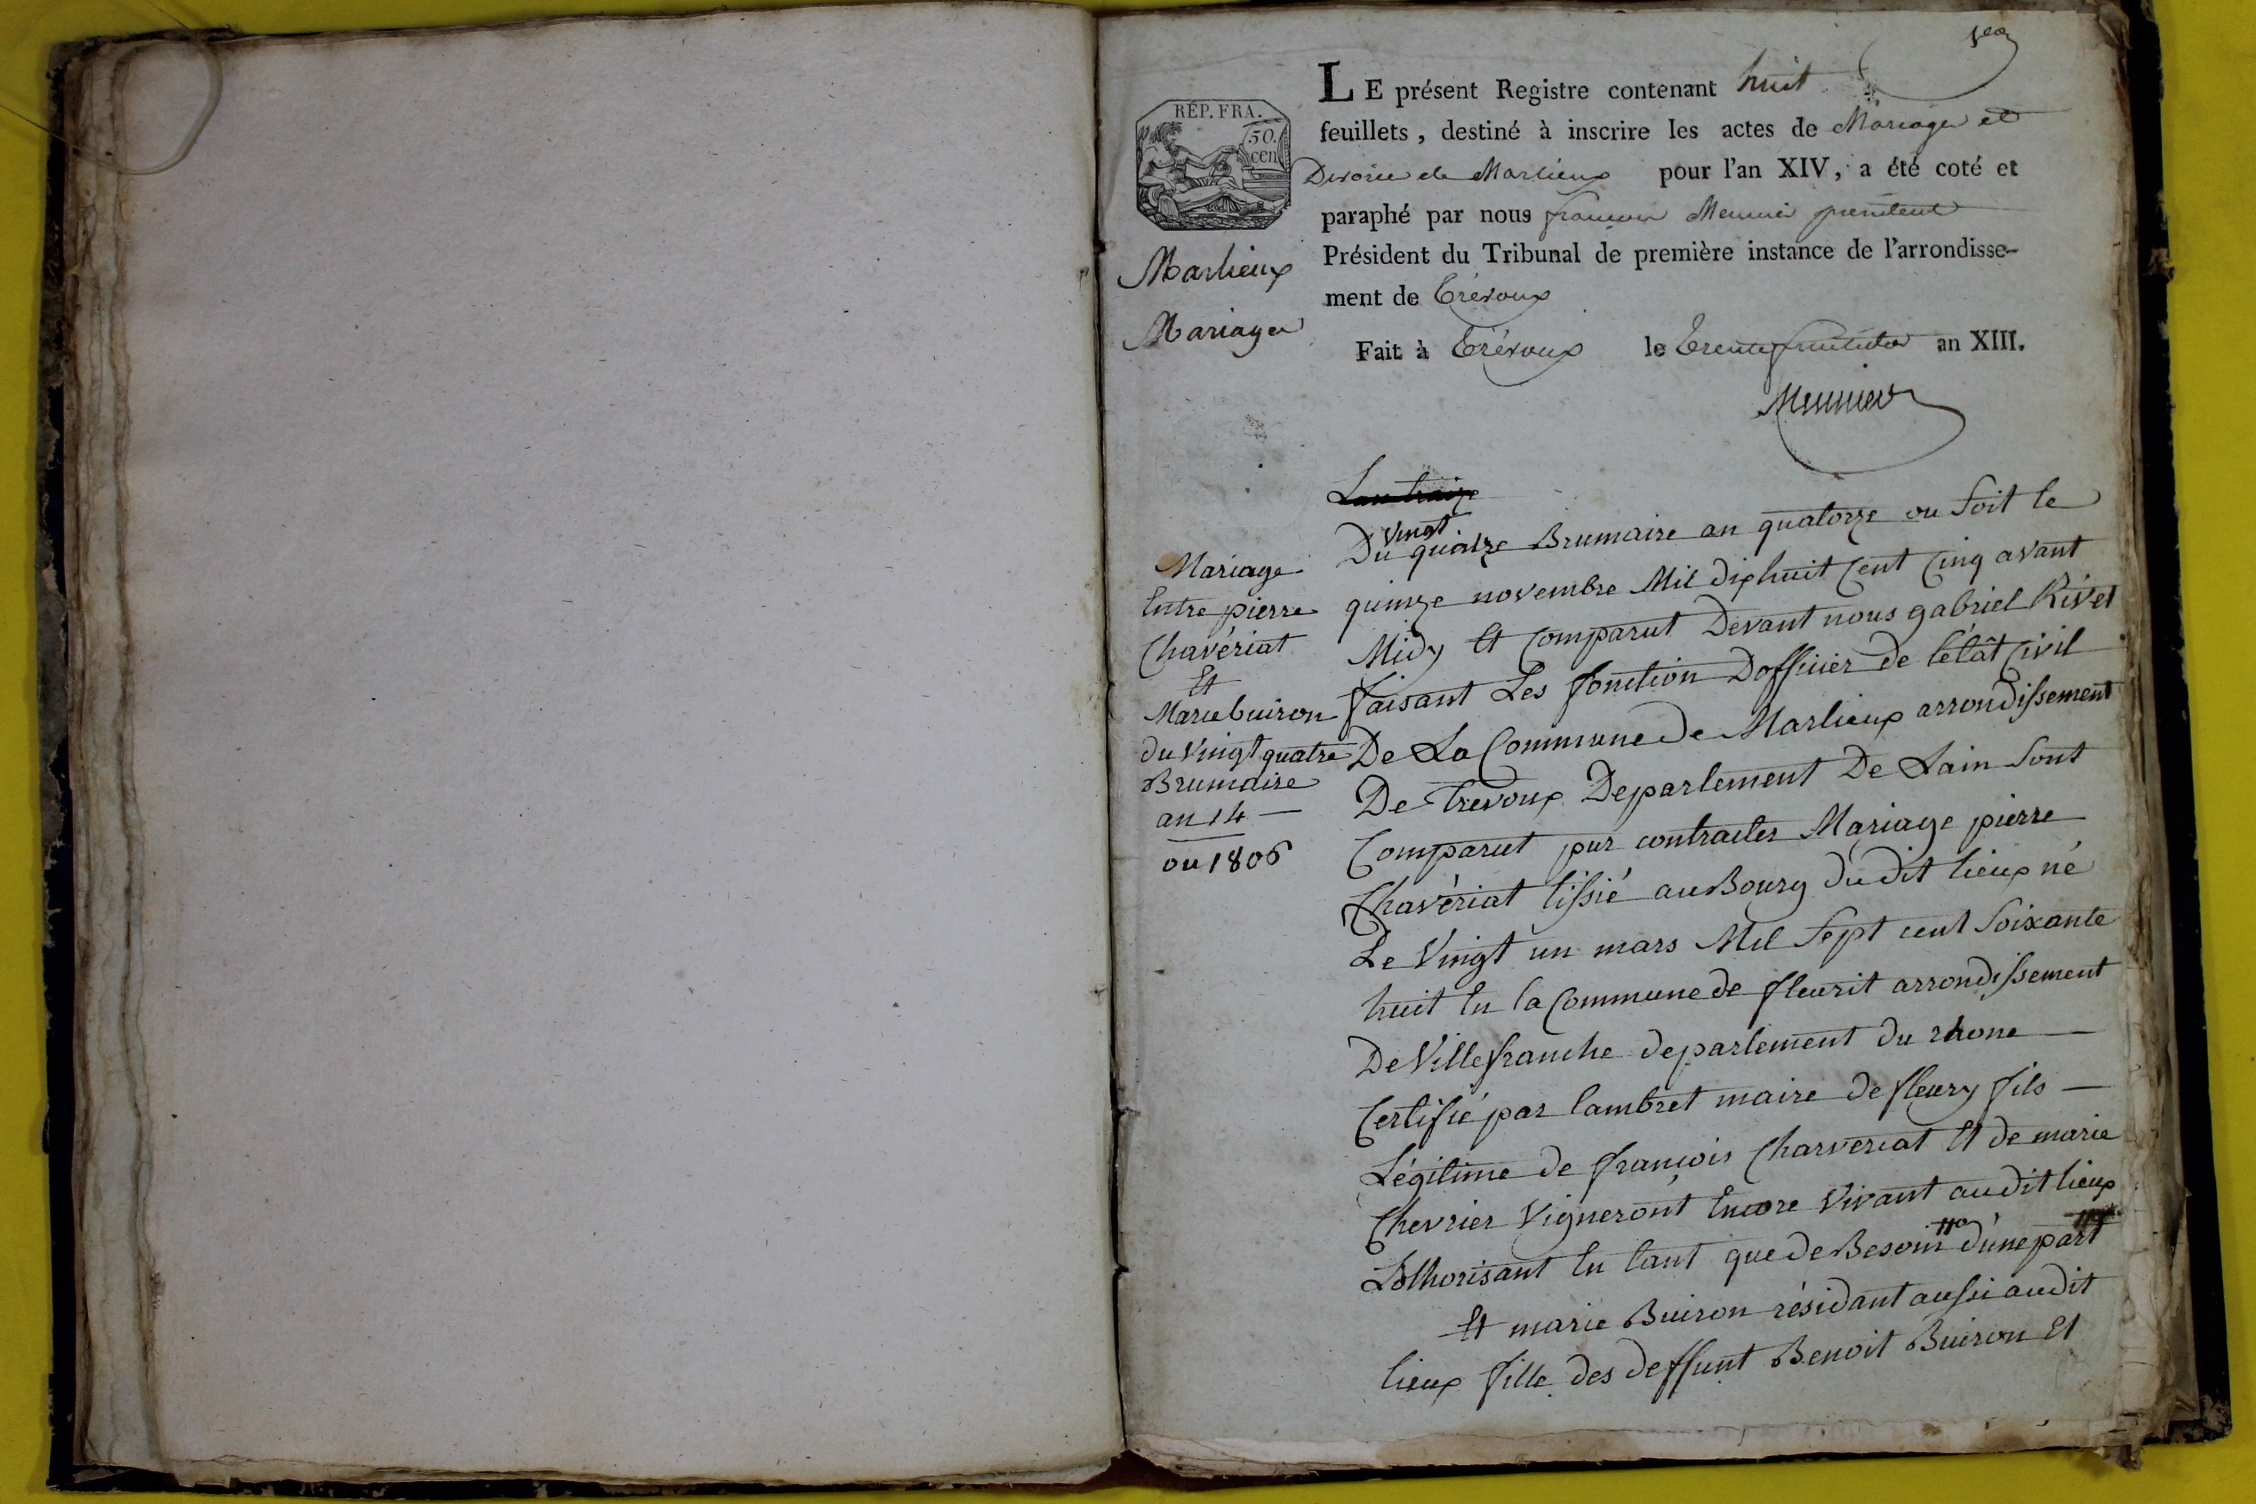 1er
RÉP. FRA.
50.
cen
LE présent Registre contenant huit
feuillets, destiné à inscrire les actes de Mariage et
Divorce de Marlieux pour l'an XIV, a été coté et
paraphé par nous françois Meunier president
Président du Tribunal de première instance de l'arrondisse-
ment de Trévoux
Fait à Trévoux le Trente fructidor an XIII.
Meunier
Marlieux
Mariages
Mariage
Entre pierre
Chavériat
Et
Marie buiron
du vingt quatre
Brumaire
an 14
ou 1806
Lan traize
Du vingt quatre Brumaire an quatorze ou soit le
quinze novembre Mil dixhuit Cent Cinq avant
Midy Et Comparut Devant nous gabriel Rivet
faisant Les fonction Dofficier de létât Civil
De La Commune de Marlieux arrondissement
De Trevoux Departement De Lain Sont
Comparut pur contracter Mariage pierre
Chavériat tissié au Bourg du dit lieux né
Le Vingt un mars Mil Sept cent Soixante
huit En la Commune de fleurit arrondissement
De Villefranche departement du rhone
Certifié par lambret maire de fleury fils
Légitime de françois Charveriat Et de marie
Chevrier Vigneront Encore Vivant audit lieux
Lothorisant En tant que de Besoin d'une part
Et marie Buiron résidant aussi audit
lieux fille des deffunt Benoit Buiron Et